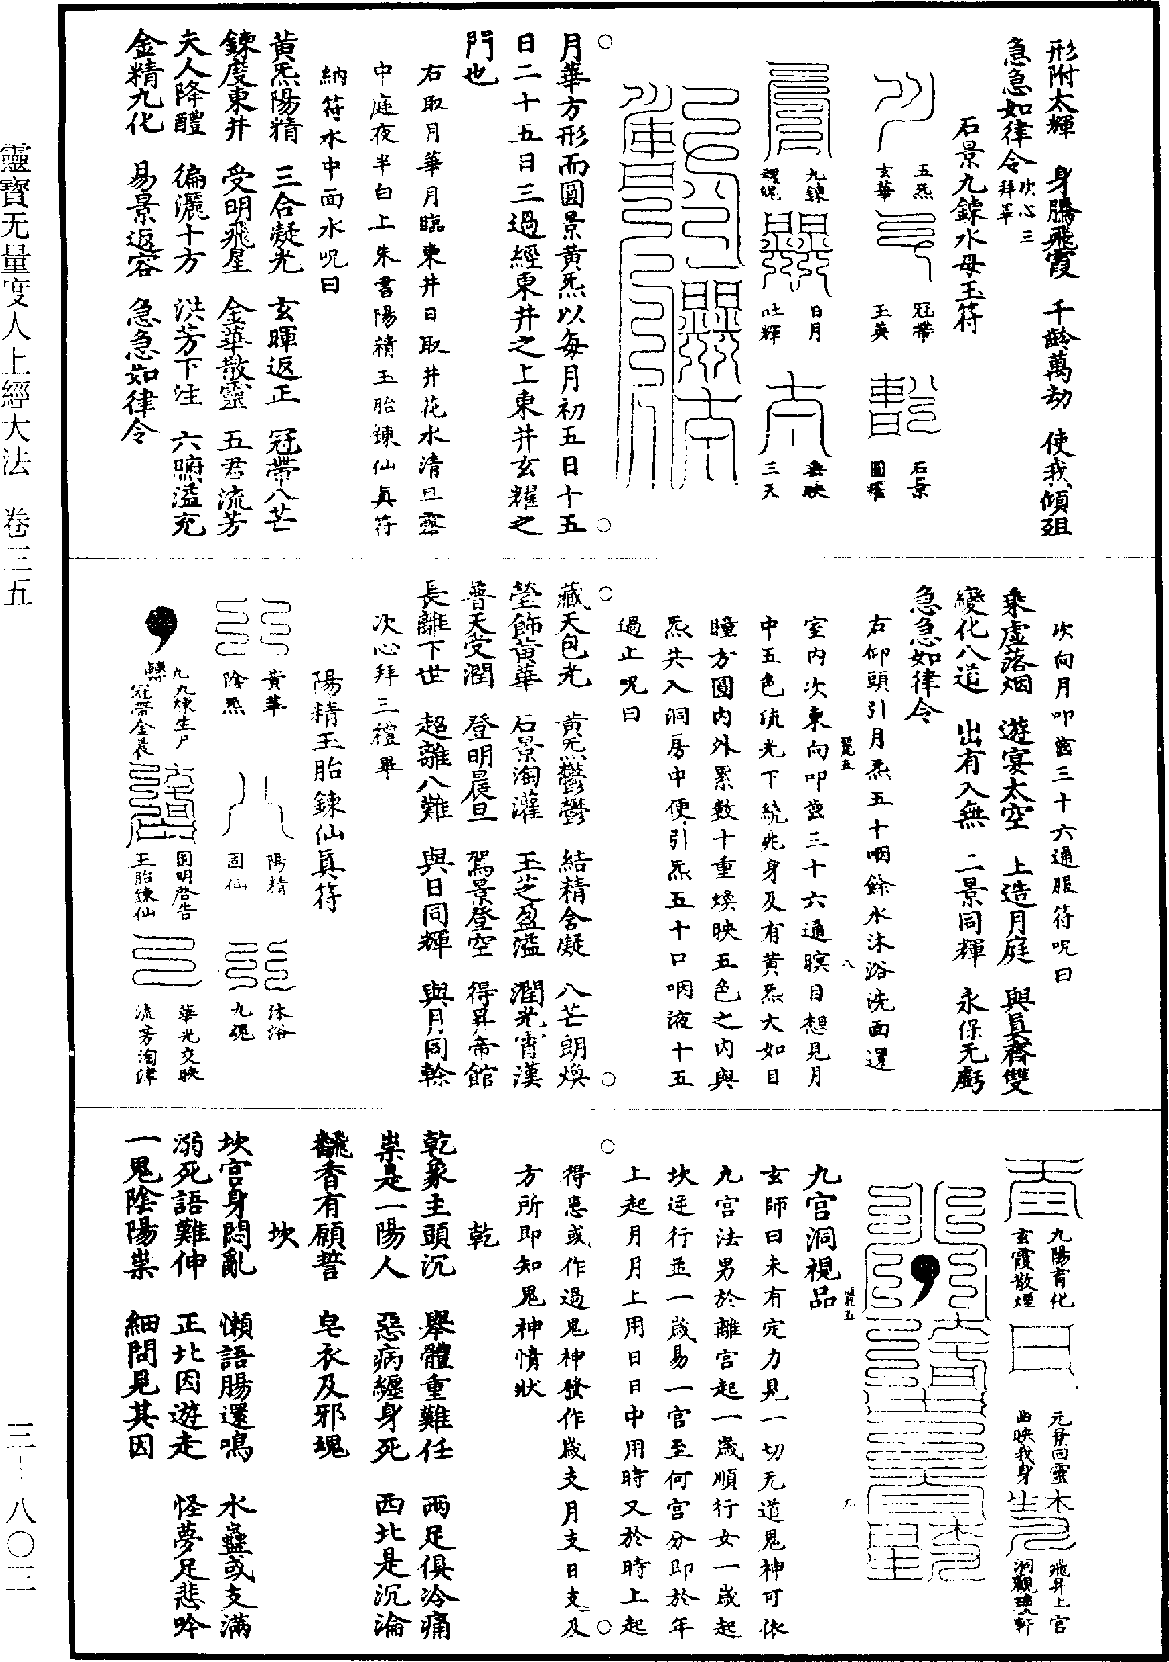 形附太輝　身騰飛霞　千齡萬劫　使我傾俎
急急如律令次心三拜畢
石景九鍊水母玉符
五炁玄華
冠帶玉英
石景圓耀
九鍊
日月吐輝
三天
月華方形而圓景黃炁以每月初五日十五
日二十五日三過經東井之上東井玄耀之
門也
右取月華月臨東井日取井花水清旦露
中庭夜半白上朱書陽精玉胎鍊仙真符
納符水中面水呪曰
黃炁陽精　三合凝光　玄暉返正　冠帶八芒
鍊度東井　受明飛星　金華散靈　五君流芳
夫人降醴　徧灑十方　洪芳下注　六腑溢充
金精九化　易景返容　急急如律令
次向月叩齒三十六通服符呪曰
乘虛落烟　遊宴太空　上造月庭　與真齊雙
變化八道　出有入無　二景同輝　永保无虧
急急如律令
右仰頭引月炁五十咽餘水沐浴洗面還
室內次東向叩齒三十六通瞑目想見月
中五色流光下繞兆身及有黃炁大如目
瞳方圓內外累數十重煥映五色之內與
炁共入洞房中便引炁五十口咽液十五
過止呪曰
藏天包光　黃炁鬱鬱　結精含凝　八芒朗煥
瑩飾黃華　石景淘灌　玉芝盈溢　潤光霄漢
普天受潤　登明晨旦　駕景登空　得昇帝館
長離下世　超離八難　與日同輝　與月同幹
次心拜三禮畢
陽精玉胎鍊仙真符
黃華陰炁
陽精固仙
沐浴九魂
九九煉生尸
冠帶金晨
固明啓告
玉胎鍊仙
華光交映
流芳淘津
九陽育化
玄霞散煙
元景回靈
曲映我身
飛昇上宮
洞觀瓊軒
九宮洞視品
玄師曰未有定力見一切无道鬼神可依
九宮法男於離宮起一歲順行女一歲起
坎逆行並一歲易一宮至何宮分即於年
上起月月上用日日中用時又於時上起
得患或作過鬼神發作歲支月支日支及
方所即知鬼神情狀
乾
乾象主頭沉　舉體重難任　兩足俱冷痛
祟是一陽人　惡病纏身死　西北是沉淪
飜香有願誓　皂衣及邪魂
坎
坎宮身悶亂　懶語腸還鳴　水蠱或支滿
溺死語難伸　正北因遊走　怪夢足悲吟
一鬼陰陽祟　細問見其因
靈寶无量度人上經大法　卷三五
三－八〇三